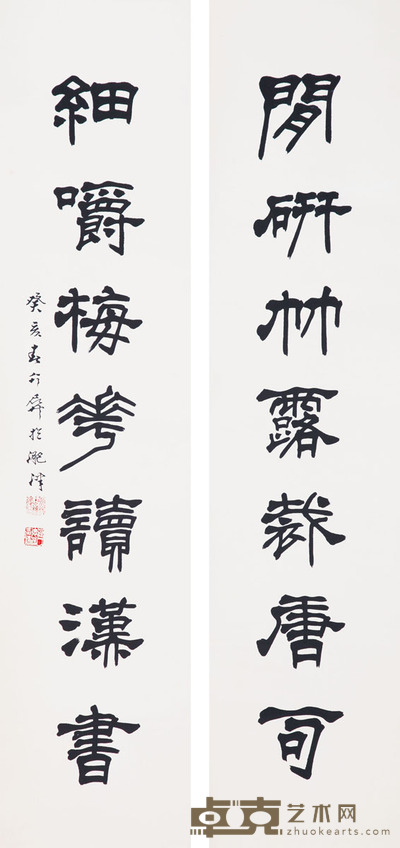 閒研竹露裁唐句
細嚼梅花讀漢書
癸亥春行舜於滬濱
卓克艺术网
zhuokearts.com